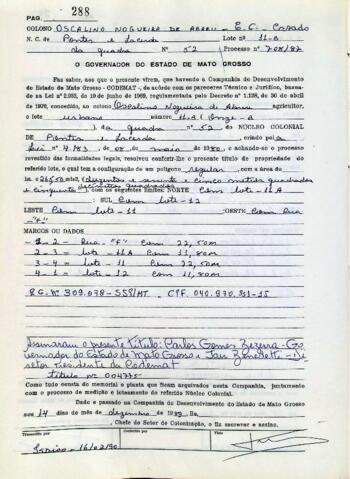 PAG. 288
COLONO OSCALINO NOGUEIRA DE ABREU - E.C. - Casado
N. C. de Pontes e Lacerda Lote nº 11-B
da quadra Nº 52 Processo nº 708/87
O GOVERNADOR DO ESTADO DE MATO GROSSO
Faz saber, aos que o presente virem, que havendo a Companhia de Desenvolvimento
do Estado de Mato Grosso - CODEMAT -, de acordo com os pareceres Técnico e Jurídico, basea-
do na Lei nº 2.033, de 19 de junho de 1963, regulamentada pelo Decreto nº 1.138, de 30 de abril
de 1970, concedido, ao colono Oscalino Nogueira de Abreu agricultor,
o lote urbano número 11-B ( Onze-B
), da quadra nº 52. DO NÚCLEO COLONIAL
DE Pontes e Lacerda criado pela
Lei nº 4.183, de 08, de maio de 1980, e achando-se o processo
revestido das formalidades legais, resolveu conferir-lhe o presente título de propriedade do
referido lote, o qual tem a configuração de um polígono regular com a área de
( duzentos e sessenta e cinco metros quadrados
e cinquenta decímetros quadrados ), com os seguintes limites: NORTE Com lote - 11A
: SUL Com lote - 12
LESTE Com lote - 11 :OESTE Com Rua
"F"
MARCOS OU DADOS
1 - 2 - Rua - "F" Com 22,50m
2 - 3 = lote - 11A Com 11,80m
3 - 4 = lote - 11 Com 22,50m
4 - 1 = lote - 12 Com 11,80m
R.G. Nº 309.078 - SSP/MT. CPF. 040.970.331-15
Assinaram o presente título: Carlos Gomes Bezerra - Go
vernador do Estado de Mato Grosso e Jair Benedetti - Di
retor Presidente da Codemat
título nº 004775
Como tudo consta do memorial e planta que ficam arquivados nesta Companhia, juntamente
com o processo de medição e loteamento do referido Núcleo Colonial.
Dado e passado na Companhia de Desenvolvimento do Estado de Mato Grosso
aos 14 dias do mês de dezembro de 1989. Eu,
, Chefe do Setor de Colonização, o fiz escrever e assino.
Transcrito por Conferido por Visto
16/02/90